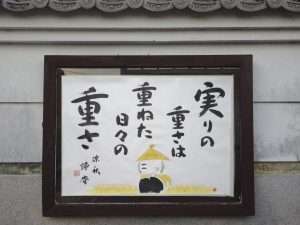 実りの
重さは
重ねた
日々の
重さ